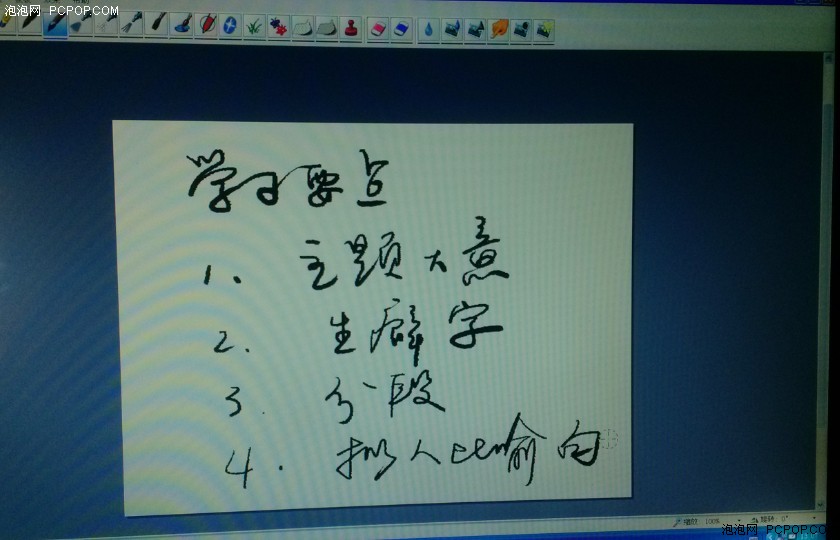 泡泡网 PCPOP.COM
学习要点
1. 主题大意
2. 生僻字
3. 分段
4. 拟人比喻句
缩放: 100% 旋转: 0°
泡泡网 PCPOP.CO